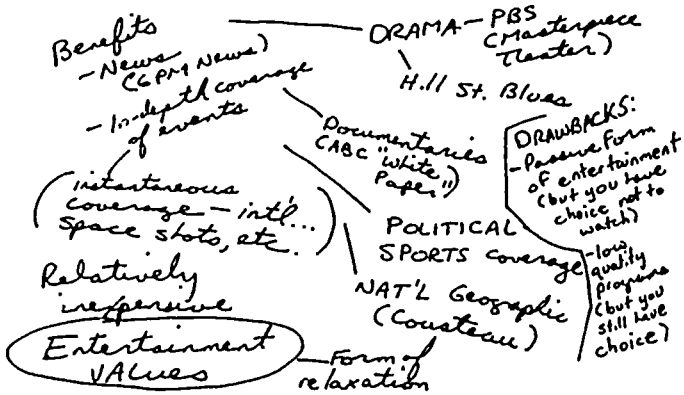 Benefits
- News
(6 PM News)
- In-depth coverage
of events
(instantaneous
coverage - int'l...
space shots, etc.)
Relatively
inexpensive
Entertainment
VALUES
- Form of
relaxation
DRAMA - PBS
(Masterpiece
Theater)
Hill St. Blues
Documentaries
(ABC "White
Paper")
POLITICAL
SPORTS coverage
NAT'L Geographic
(Cousteau)
DRAWBACKS:
- Passive form
of entertainment
(but you have
choice not to
watch)
- low
quality
programs
(but you
still have
choice)